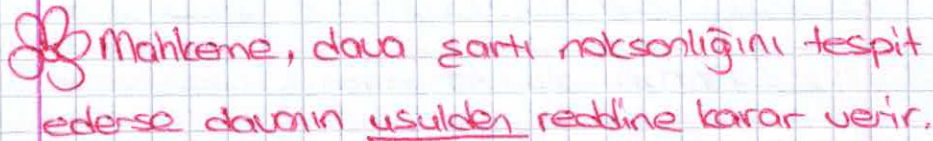 Mahkeme, dava şartı noksanlığını tespit
ederse davanın usulden reddine karar verir.